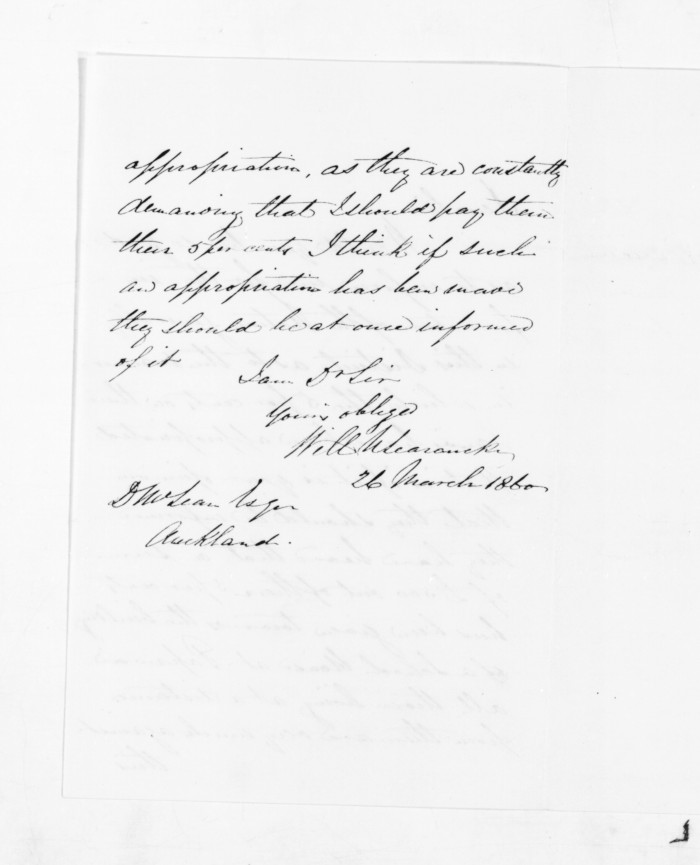 appropriation, as they are constantly
demanding that I should pay them
their 5 per cents I think if such
an appropriation has been made
they should be at once informed
of it
I am Dr Sir
Yours obliged
Will N Searancke
26 March 1860
D McLean Esqr
Auckland.